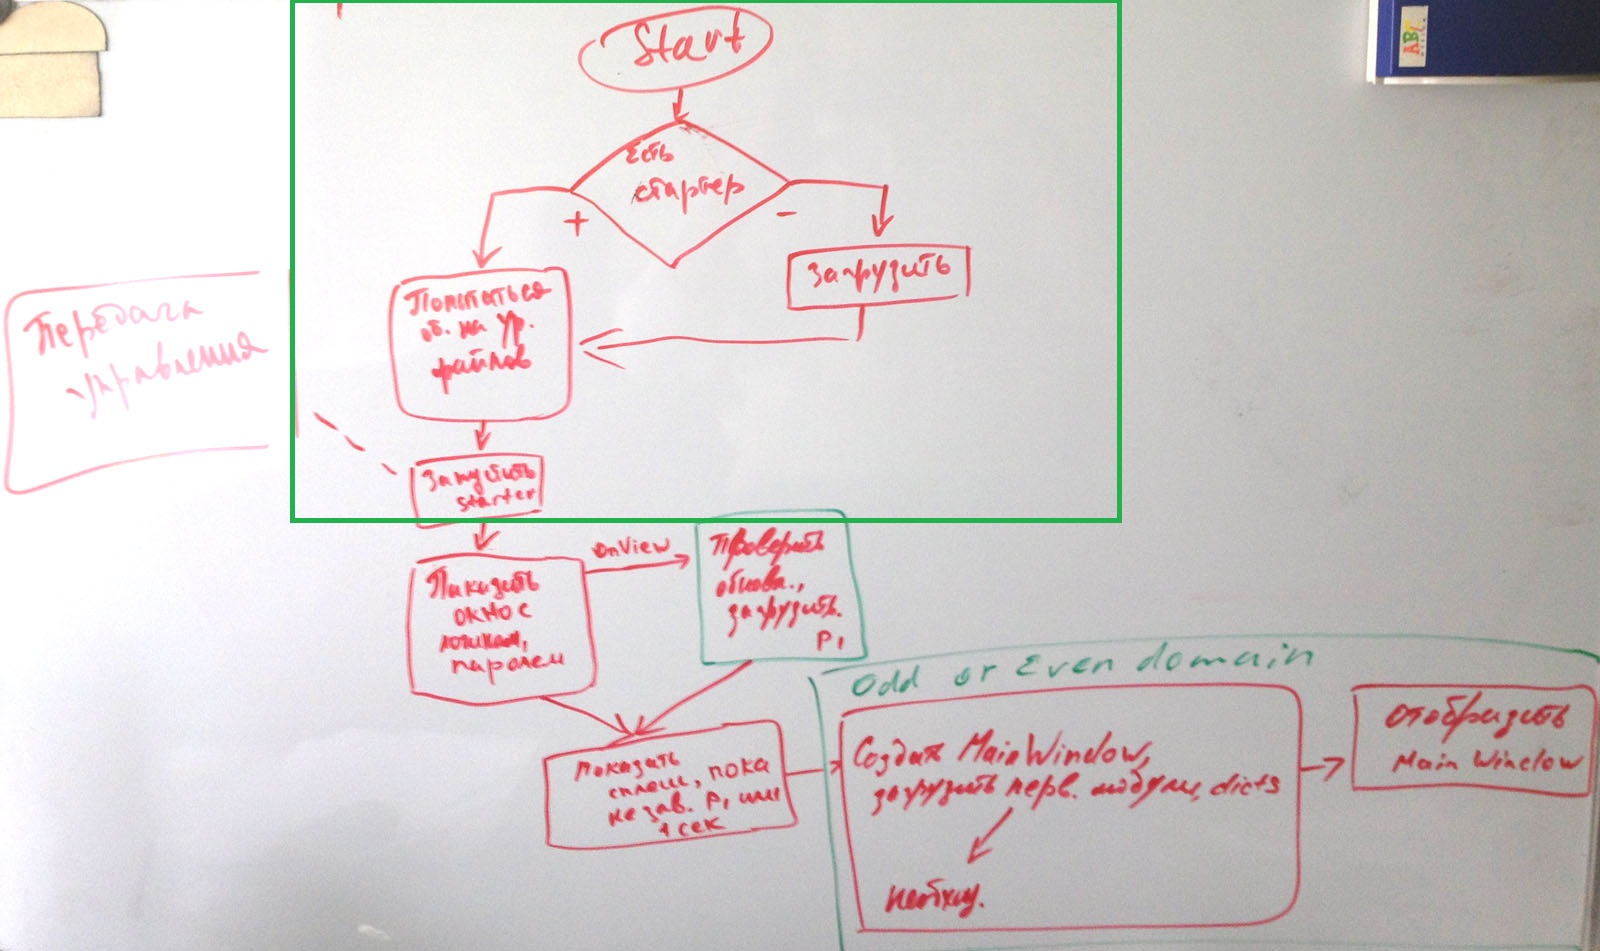 Start
Есть
стартер
+
-
Загрузить
Попытаться
об. на ур.
файлов
Передача
управления
Запустить
starter
Показать
окно с
логином,
паролем
OnView
Проверить
обновл.,
загрузить.
P1
Показать
сплеш, пока
не зав. P1 или
1 сек
Odd or Even domain
Создать MainWindow,
загрузить перв. модули, dicts
необход.
Отобразить
Main Window
ABC